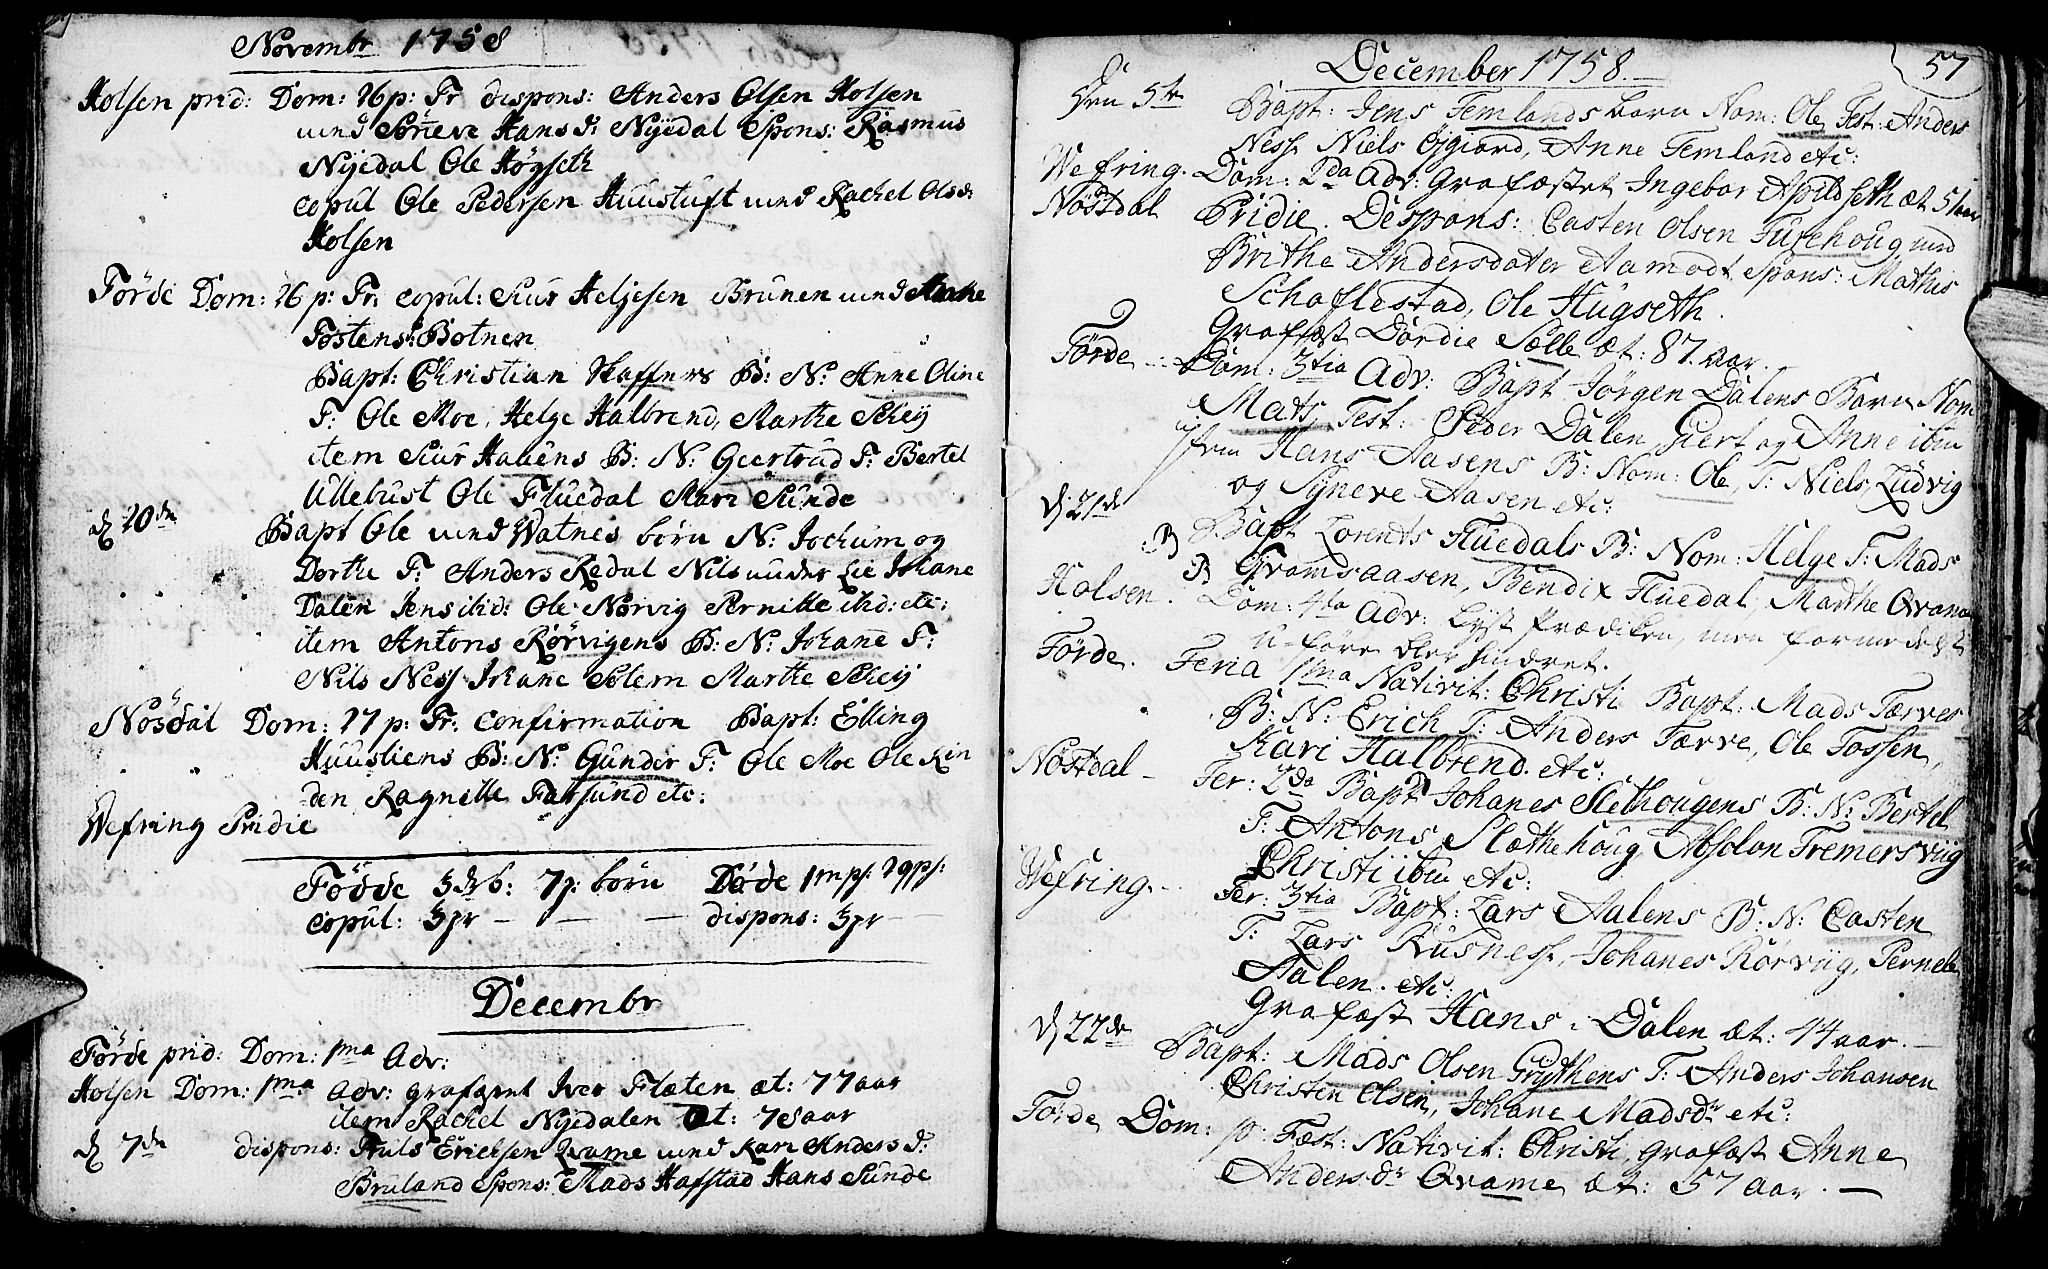 Novembr 1758
Holsen prid: Dom: 26 p: Tr dispons: Anders Olsen Holsen
med Sÿneve Hans d: Nyedal Spons: Rasmus
Nyedal Ole Högseth
copul Ole Pedersen Huustuft med Rachel Olsd:
Holsen
Förde Dom: 26 p: Tr: copul: Siur Heljesen Brunen med Marthe
Tostensd: Botnen
Bapt: Christian Skaffers B: N: Anne Oline
T: Ole Moe, Helge Halbrend, Marthe Scheij
item Siur Hauens B: N: Geertrud T: Bertel
Ullebust Ole Fluedal Mari Sunde
d 20de Bapt Ole ved Watnes börn N: Jochum og
Dorthe T: Anders Redal Nils under Lie Johane
Dalen Jens ibid: Ole Norvig Pernille ibid: etc:
item Antons Rörvigens B: N: Johane T:
Nils Ness Johane Solem Marthe Scheij
Nosdal Dom: 27 p: Tr: confirmation Bapt: Elling
Huusliens B: N: Gunder T: Ole Moe Ole Rin
den Ragnille Farsund etc:
Wefring Pridie
Födde 3 dr b: 7 p: börn Döde 1 mp: 2 qp:
copul: 3 pr — — — dispons: 3 pr —
Decembr
Förde prid: Dom: 1ma Adv:
Holsen Dom: 1ma Adv: grafæst Iver Flæten æt: 77 aar
item Rachel Nyedalen æt: 78 aar
d 7de dispons: Truls Ericksen Qvame med Kari Anders d:
Bruland Spons: Mads Hafstad Hans Sunde
57
December 1758. —
Den 5te Bapt: Jens Femlands barn Nom: Ole Test: Anders
Ness Niels Ejgiord, Anne Femland etc:
Wefring. Dom: 2da Adv: Grafæstet Ingebor Apildseth æt 51 aar
Nöstdal Pridie. Despons: Casten Olsen Furehoug med
Brithe Andersdater Aamodt Spons: Mathis
Schaflestad, Ole Hugseth.
Grafæst Dordie Sælle æt: 87. aar.
Förde Dom: 3tia Adv: Bapt Jörgen Dalens Barn Nom
Mats Test: Peder Dalen, Giert og Anne ibm
item Hans Aasens B: Nom: Ole, T: Niels, Ludvig
og Syneve Aasen etc:
d 21de Bapt Lorents Fluedals B: Nom: Helge T: Mads
Gramsaasen, Bendix Fluedal, Marthe Qvame
Holsen. Dom: 4ta Adv: Lyst Prædiken, men formedelst
u-före blev hindret.
Förde. Feria 1ma Nativit: Christi Bapt: Mads Færves
B: N: Erich T: Anders Færve, Ole Fossen,
Kari Halbrend. etc:
Nöstdal — Fer: 2da Bapt Johanes Slethougens B: N: Bertel
T: Antons Slæthehoug, Absolon Fremersviig
Christi ibm etc:
Wefring. — Fer: 3tia Bapt: Lars Aalens B: N: Casten
T: Lars Kusness, Johanes Rörviig, Pernele
Aalen. etc:
Grafæst Hans i Dalen æt: 44 aar. —
d 22de Bapt: Mads Olsen Grythens T: Anders Johansen
Christen Olsen, Johane Madsdr etc:
Förde Dom: p: Fæst: Nativit: Christi, grafæst Anne
Anders-dr Qvame æt: 57 aar. —